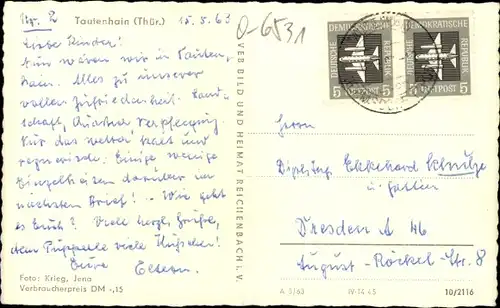 Tautenhain (Thür.) 15.5.63
0-6531
Liebe Kinder!
Nun wären wir in Tauten-
hain. Alles zu unserer
vollen Zufriedenheit. Land-
schaft, Quartier, Verpflegung.
Nur das Wetter kalt und
regnerisch. Einige wenige
Einzelheiten darüber im
nächsten Brief! - Wie geht
es Euch? Viele herzl. Grüße,
dem Püppele viele Küßchen!
Eure Eltern.
Foto: Krieg, Jena
Verbraucherpreis DM -,15
VEB BILD UND HEIMAT REICHENBACH i. V.
DEUTSCHE DEMOKRATISCHE REPUBLIK
5 LUFTPOST 5
DEUTSCHE DEMOKRATISCHE REPUBLIK
5 LUFTPOST 5
Herrn
Dipl. Ing. Ekkehard Schulze
u. Gattin
Dresden A 46
August-Röckel-Str. 8
A 5/63 IV-14-45 10/2116